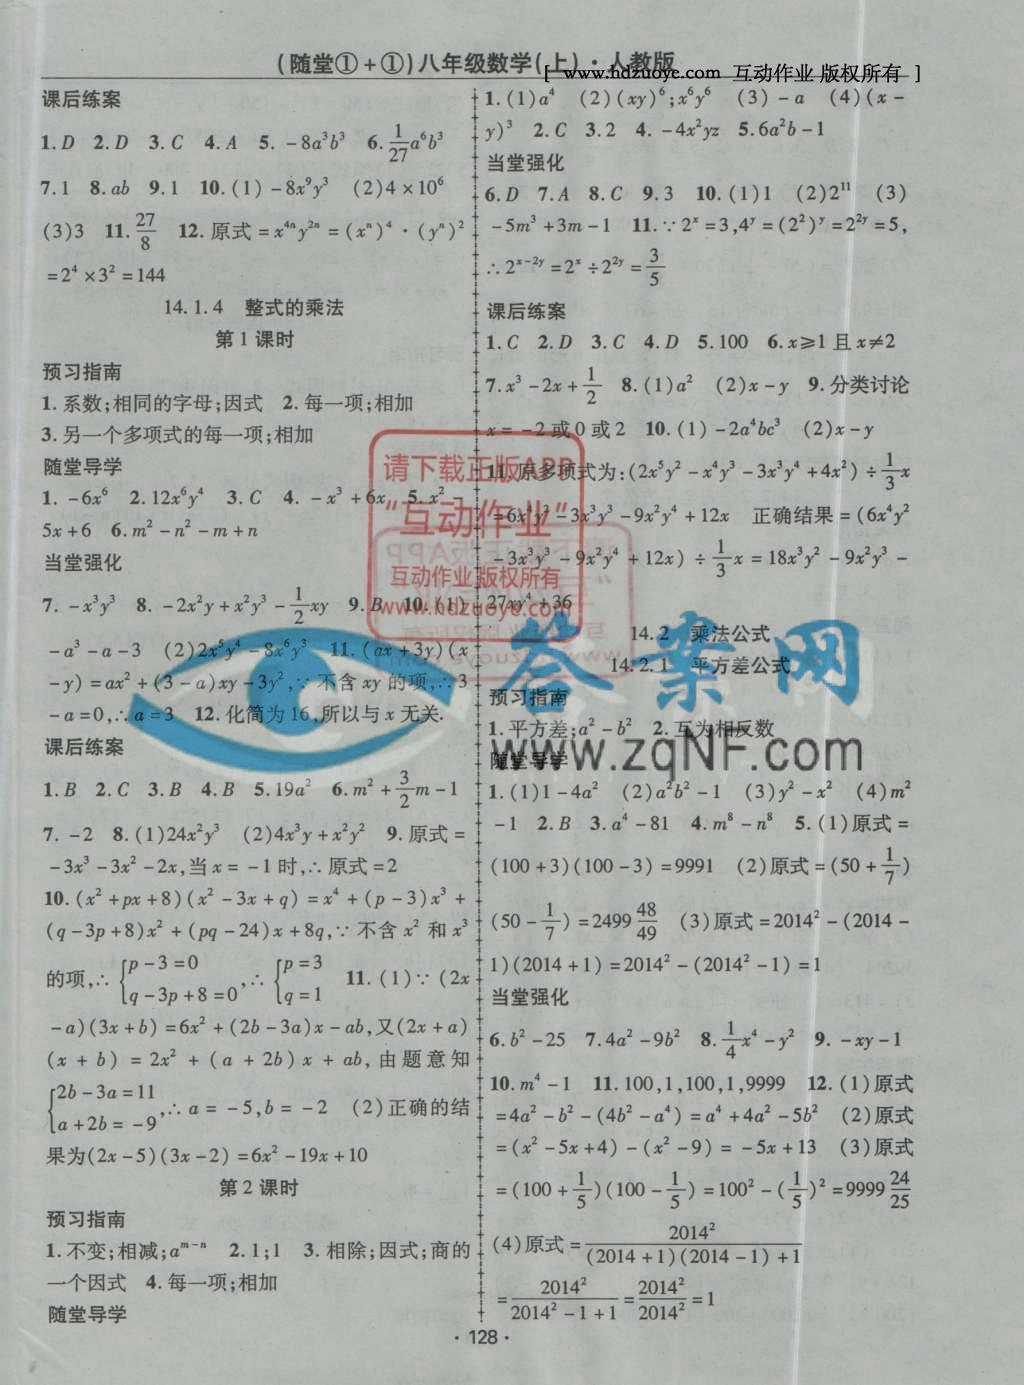 (随堂①+①)八年级数学(上)·人教版
[ www.hdzuoye.com 互动作业 版权所有 ]
课后练案
1.D 2.D 3.C 4.A 5.-8a³b³ 6.1/27 a⁶b³
7.1 8.ab 9.1 10.(1)-8x⁹y³ (2)4×10⁶
(3)3 11.27/8 12.原式=x⁴ⁿy²ⁿ=(xⁿ)⁴·(yⁿ)²
=2⁴×3²=144
14.1.4 整式的乘法
第1课时
预习指南
1.系数;相同的字母;因式 2.每一项;相加
3.另一个多项式的每一项;相加
随堂导学
1.-6x⁶ 2.12x⁶y⁴ 3.C 4.-x³+6x 5.x²-
5x+6 6.m²-n²-m+n
当堂强化
7.-x³y³ 8.-2x²y+x²y²-1/2 xy 9.B 10.(1)
-a³-a-3 (2)2x⁵y⁴-8x⁶y³ 11.(ax+3y)(x
-y)=ax²+(3-a)xy-3y²,∵不含xy的项,∴3
-a=0,∴a=3 12.化简为16,所以与x无关.
课后练案
1.B 2.C 3.B 4.B 5.19a² 6.m²+3/2 m-1
7.-2 8.(1)24x²y³ (2)4x³y+x²y² 9.原式=
-3x³-3x²-2x,当x=-1时,∴原式=2
10.(x²+px+8)(x²-3x+q)=x⁴+(p-3)x³+
(q-3p+8)x²+(pq-24)x+8q,∵不含x²和x³
的项,∴{p-3=0 q-3p+8=0,∴{p=3 q=1 11.(1)∵(2x
-a)(3x+b)=6x²+(2b-3a)x-ab,又(2x+a)
(x+b)=2x²+(a+2b)x+ab,由题意知
{2b-3a=11 a+2b=-9,∴a=-5,b=-2 (2)正确的结
果为(2x-5)(3x-2)=6x²-19x+10
第2课时
预习指南
1.不变;相减;aᵐ⁻ⁿ 2.1;1 3.相除;因式;商的
一个因式 4.每一项;相加
随堂导学
1.(1)a⁴ (2)(xy)⁶;x⁶y⁶ (3)-a (4)(x-
y)³ 2.C 3.2 4.-4x²yz 5.6a²b-1
当堂强化
6.D 7.A 8.C 9.3 10.(1)1 (2)2¹¹ (3)
-5m³+3m-1 11.∵2ˣ=3,4ʸ=(2²)ʸ=2²ʸ=5,
∴2ˣ⁻²ʸ=2ˣ÷2²ʸ=3/5
课后练案
1.C 2.D 3.D 4.D 5.100 6.x⩾1且x≠2
7.x³-2x+1/2 8.(1)a² (2)x-y 9.分类讨论
x=-2或0或2 10.(1)-2a⁴bc³ (2)x-y
11.原多项式为:(2x⁵y²-x⁴y³-3x³y⁴+4x²)÷1/3 x
=6x⁴y²-3x³y³-9x²y⁴+12x 正确结果=(6x⁴y²
-3x³y³-9x²y⁴+12x)÷1/3 x=18x³y²-9x²y³-
27xy⁴+36
14.2 乘法公式
14.2.1 平方差公式
预习指南
1.平方差;a²-b² 2.互为相反数
随堂导学
1.(1)1-4a² (2)a²b²-1 (3)y²-x² (4)m²
-1 2.B 3.a⁴-81 4.m⁸-n⁸ 5.(1)原式=
(100+3)(100-3)=9991 (2)原式=(50+1/7)
(50-1/7)=2499 48/49 (3)原式=2014²-(2014-
1)(2014+1)=2014²-(2014²-1)=1
当堂强化
6.b²-25 7.4a²-9b² 8.1/4 x⁴-y² 9.-xy-1
10.m⁴-1 11.100,1,100,1,9999 12.(1)原式
=4a²-b²-(4b²-a⁴)=a⁴+4a²-5b² (2)原式
=(x²-5x+4)-(x²-9)=-5x+13 (3)原式
=(100+1/5)(100-1/5)=100²-(1/5)²=9999 24/25
(4)原式=2014²/(2014+1)(2014-1)+1
=2014²/2014²-1+1=2014²/2014²=1
·128·
请下载正版APP
“互动作业”
互动作业 版权所有
www.hdzuoye.com
答案网
www.zqNF.com